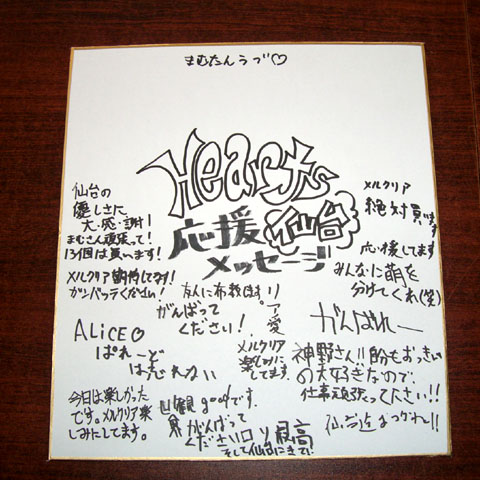 まむたんラブ♡
Hearts
仙台
応援
メッセージ
仙台の
優しさに
大・感・謝!
まむさん頑張って!
13個は買います!
メルクリア
絶対買います
応援してます
みんなに萌を
分けてくれ(笑)
メルクリア期待してます!
ガンバッテください!
友人に布教します
がんばって
ください!
リア愛
がんばれー
ALICE♡
ぱれーど
は売れない
メルクリア
楽しみに
してます。
神野さん!!
の大好きなので、
仕事頑張ってください!!
今日は楽しかった
です。メルクリア楽
しみにしてます。
世界観goodです。
がんばって
ください
ロリ最高
そして仙台にきて!